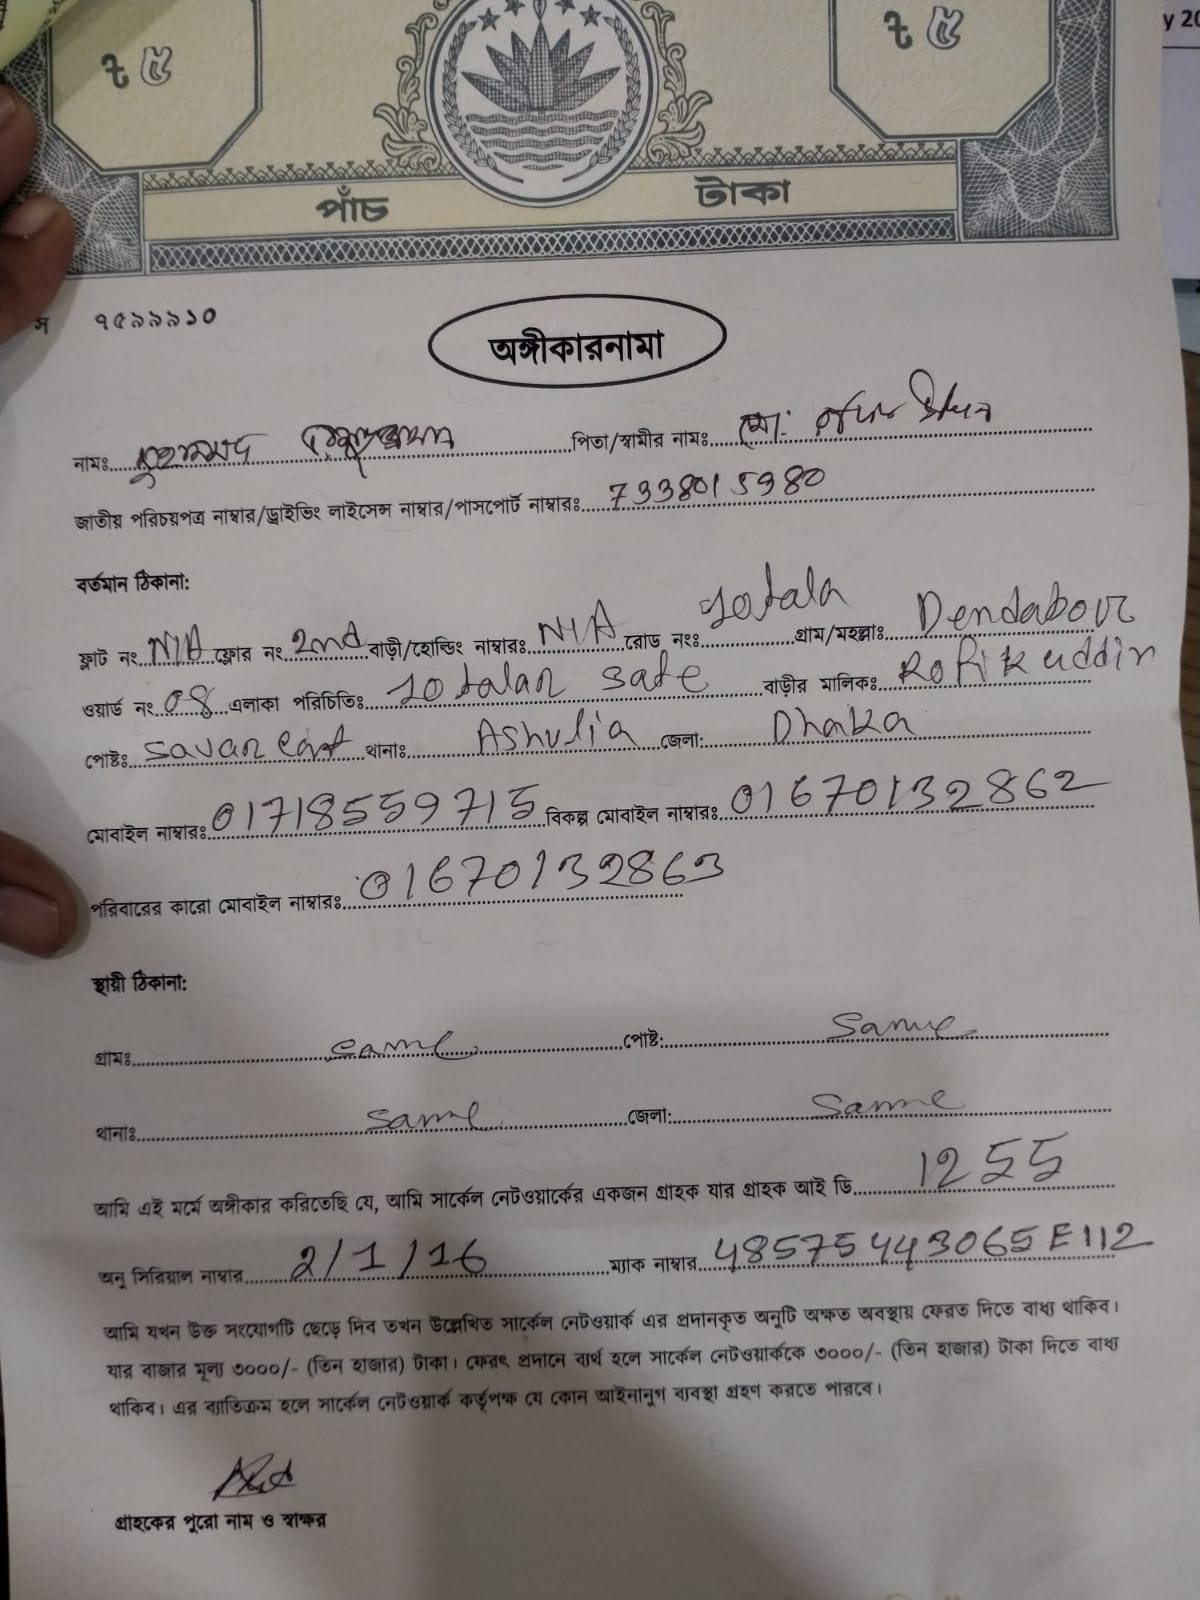 ৳ ৫ ৳ ৫
পাঁচ টাকা
স ৭৫৯৯৯১০
অঙ্গীকারনামা
নামঃ পিতা/স্বামীর নামঃ মো:
জাতীয় পরিচয়পত্র নাম্বার/ড্রাইভিং লাইসেন্স নাম্বার/পাসপোর্ট নাম্বারঃ 7338015980
বর্তমান ঠিকানা:
ফ্লাট নং N/A ফ্লোর নং 2nd বাড়ী/হোল্ডিং নাম্বারঃ N/A রোড নং গ্রাম/মহল্লাঃ Dendabour
ওয়ার্ড নং 08 এলাকা পরিচিতিঃ বাড়ীর মালিকঃ Rofikuddin
পোষ্টঃ Savar cant থানাঃ Ashulia জেলা: Dhaka
মোবাইল নাম্বারঃ 01718559715 বিকল্প মোবাইল নাম্বারঃ 01670132862
পরিবারের কারো মোবাইল নাম্বারঃ 01670132863
স্থায়ী ঠিকানা:
গ্রামঃ same পোষ্ট: same
থানাঃ same জেলা: same
আমি এই মর্মে অঙ্গীকার করিতেছি যে, আমি সার্কেল নেটওয়ার্কের একজন গ্রাহক যার গ্রাহক আই ডি 1255
অনু সিরিয়াল নাম্বার 2/1/16 ম্যাক নাম্বার 485754443065E112
আমি যখন উক্ত সংযোগটি ছেড়ে দিব তখন উল্লেখিত সার্কেল নেটওয়ার্ক এর প্রদানকৃত অনুটি অক্ষত অবস্থায় ফেরত দিতে বাধ্য থাকিব।
যার বাজার মূল্য ৩০০০/- (তিন হাজার) টাকা। ফেরৎ প্রদানে ব্যর্থ হলে সার্কেল নেটওয়ার্ককে ৩০০০/- (তিন হাজার) টাকা দিতে বাধ্য
থাকিব। এর ব্যাতিক্রম হলে সার্কেল নেটওয়ার্ক কর্তৃপক্ষ যে কোন আইনানুগ ব্যবস্থা গ্রহণ করতে পারবে।
গ্রাহকের পুরো নাম ও স্বাক্ষর